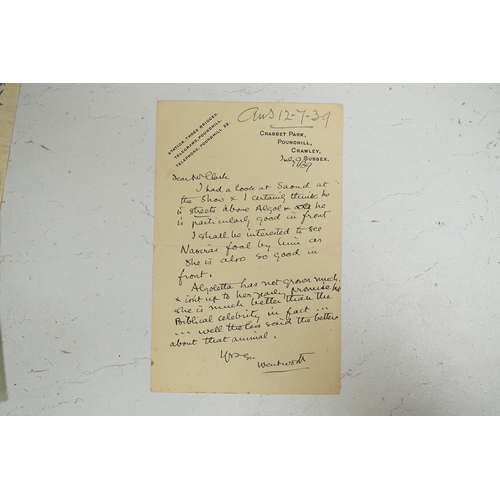 Ans 12-7-39
STATION, THREE BRIDGES.
TELEGRAMS, POUNDHILL.
TELEPHONE, POUNDHILL
CRABBET PARK,
POUNDHILL,
CRAWLEY,
SUSSEX.
July 9/39
Dear Mr Clark
I had a look at Saoud at
the show & I certainly think he
is streets above Algol & he
is particularly good in front
I shall be interested to see
Nasiras foal by him as
she is also so good in
front.
Algoletta has not grown much
& isnt up to her early promise but
she is much better than the
Biblical celebrity in fact ...
... well the less said the better
about that animal.
Wentworth